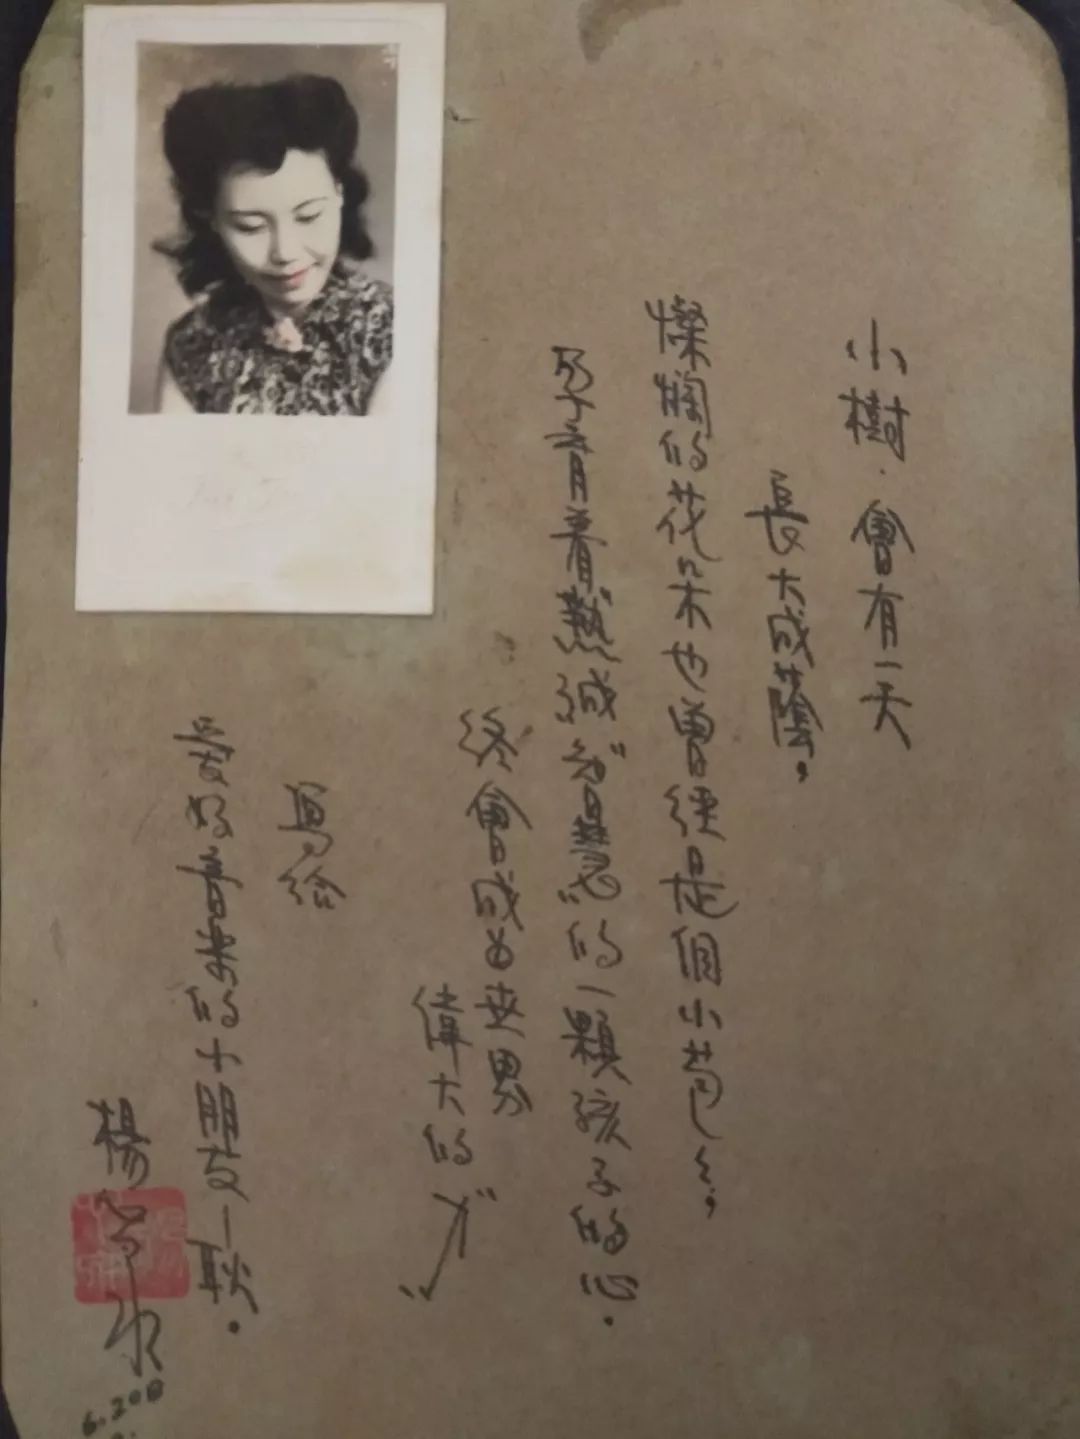 小樹．會有一天
長大成蔭，
燦爛的花朵也曾經是個小苞々，
孕育着“熱誠”“智慧”的一顆孩子的心．
終會成為世界
偉大的
寫給
愛好音樂的小朋友—耿．
楊
6.20日